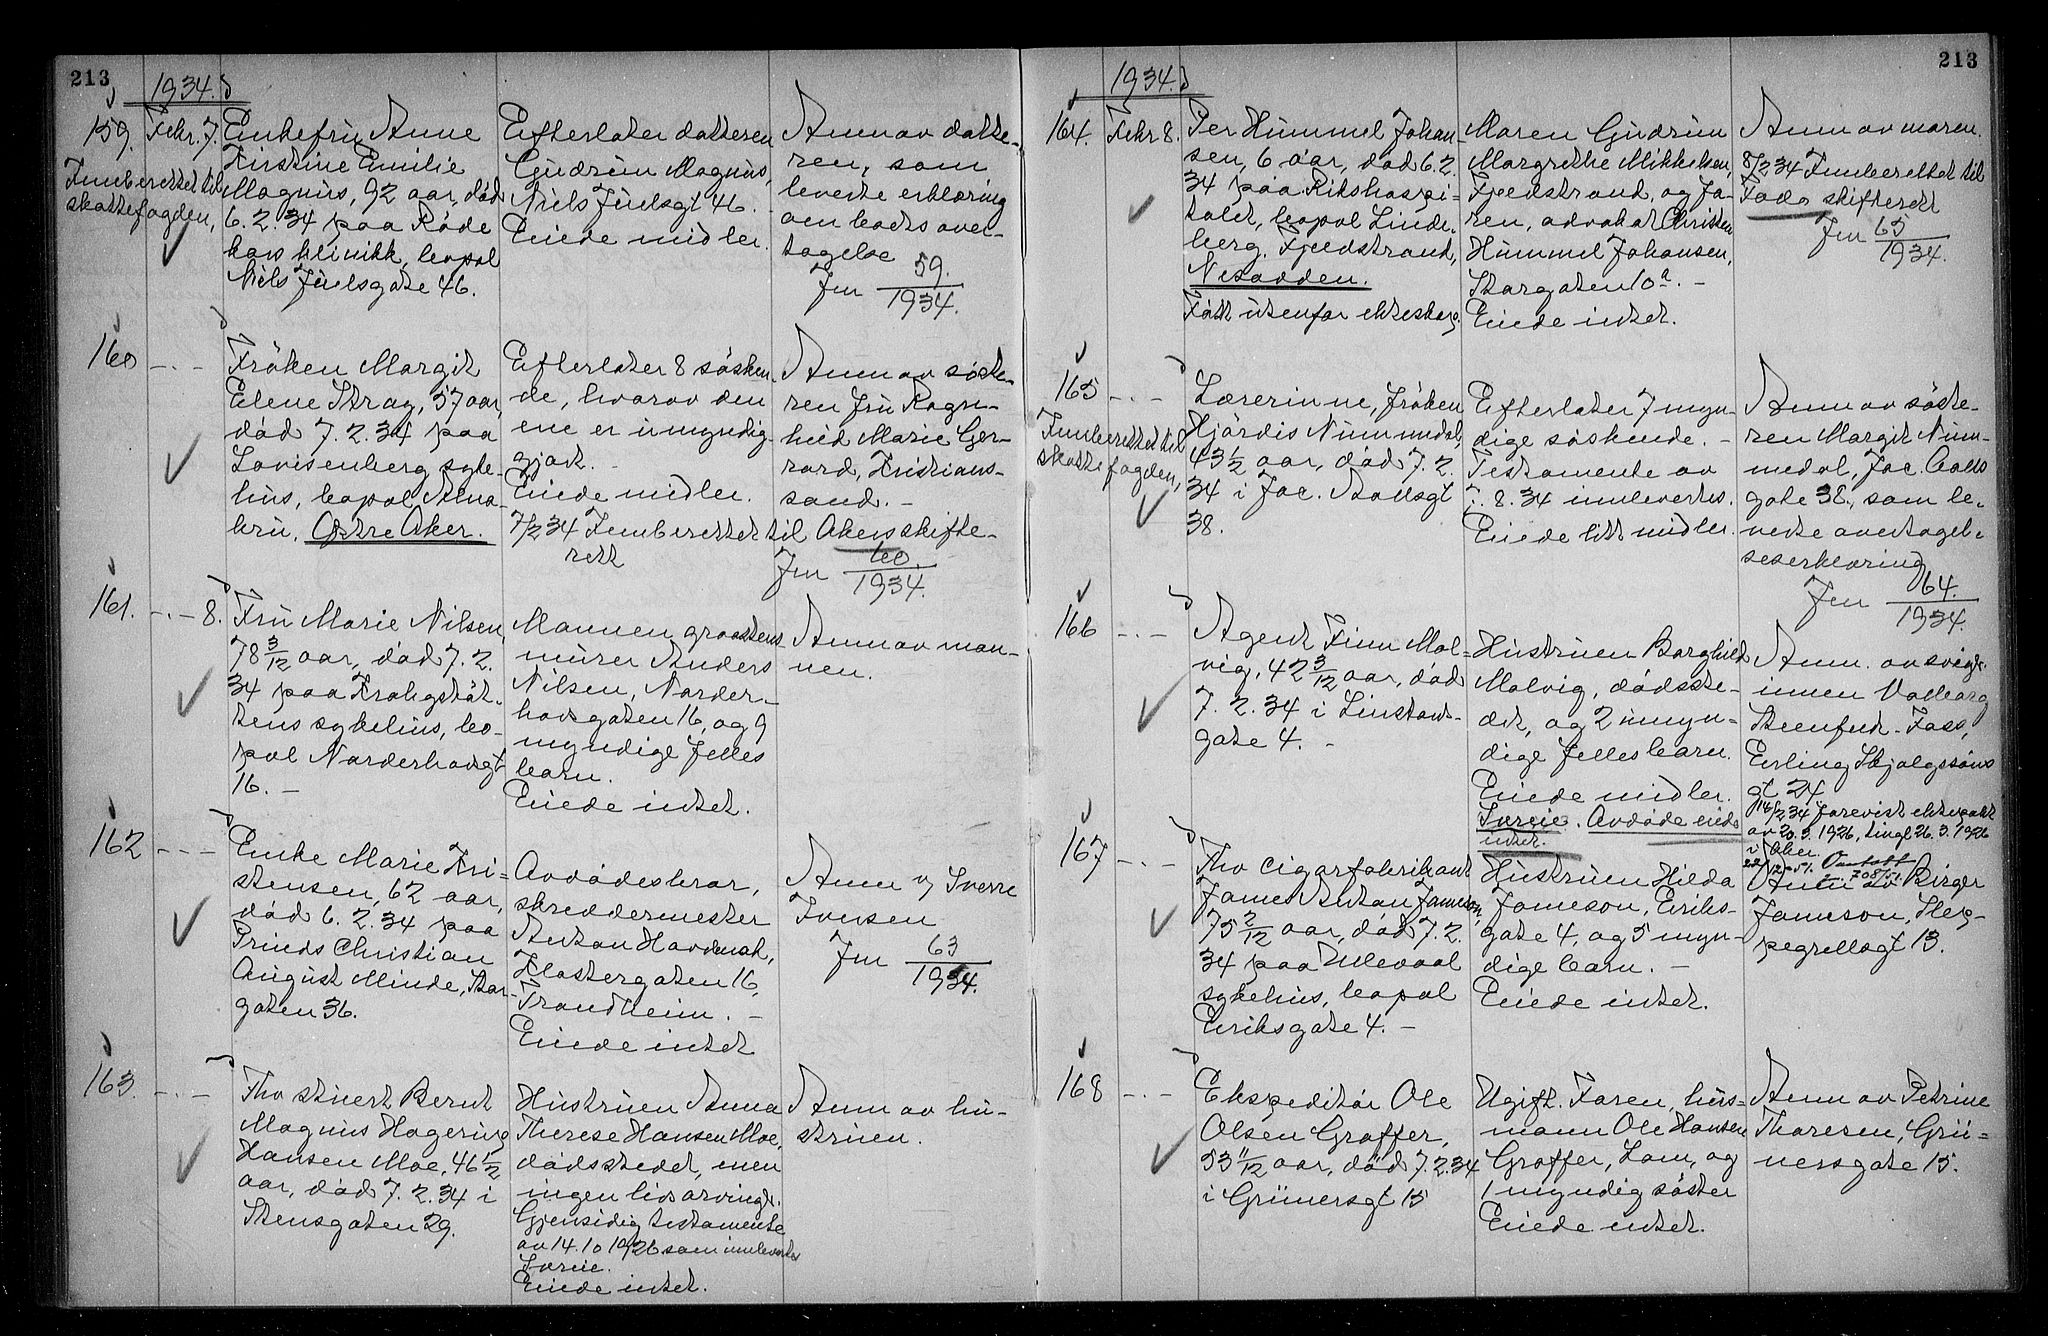 213
1934.
159. Febr. 7.
Innberettet til
skattefogden,
Enkefru Anne
Kirstine Emilie
Magnus, 92 aar, død
6.2.34 paa Røde
kors klinikk, bopæl
Niels Juelsgate 46.
Efterlater datteren
Gudrun Magnus,
Niels Juelsgt 46. -
Eiede midler.
Anm av datte-
ren, som
leverte erklæring
om boets over-
tagelse
Jnr 59./1934.
160 -.-
Frøken Margit
Elene Stray, 57 aar,
død 7.2.34 paa
Lovisenberg syke-
hus, bopæl Alna-
bru, Østre Aker.
Efterlater 8 søsken-
de, hvorav den
ene er umyndig-
gjort. -
Eiede midler.
7/2 34 Innberettet til Akers skifte-
rett
Anm av søste-
ren fru Ragn-
hild Marie Ger-
rard, Kristians-
sand. -
Jnr 60./1934.
161. -.- 8.
Fru Marie Nilsen,
78 3/12 aar, død 7.2.
34 paa Krohgstøt-
tens sykehus, bo-
pæl Norderhovsgt
16. -
Mannen graastens
murer Anders
Nilsen, Norder-
hovsgaten 16, og 9
myndige felles
barn.
Eiede intet.
Anm av man-
nen.
162 -.-
Enke Marie Kri-
stensen, 62 aar,
død 6.2.34 paa
Prinds Christian
August Minde, Stor-
gaten 36.
Avdødes bror,
skreddermester
Anton
Klostergaten 16,
Trondheim. -
Eiede intet
Anm v/ Sverre
Iversen
Jnr 63/1934.
163. -.-
Fhv stuert Bernt
Magnus Hagerup
Hansen Moe, 46 1/2
aar, død 7.2.34 i
Stensgaten 29.
Hustruen Anna
Therese Hansen Moe,
dødsstedet, men
ingen livsarving.
Gjensidig testamente
av 14.10 1926 som innlevertes
Særeie.
Eiede intet.
Anm av hu-
struen.
213
1934.
164. Febr 8.
Per Hummel Johan-
sen, 6 aar, død 6.2.
34 paa Rikshospi-
talet, bopæl Linde-
berg, Fjeldstrand,
Nesodden.
Født utenfor ekteskap.
Maren Gudrun
Margrethe Mikkelsen,
Fjeldstrand, og fa-
ren, advokat Christen
Hummel Johansen,
Storgaten 10a. -
Eiede intet.
Anm av moren.
8/2 34 Innberettet til
Follo skifterett
Jnr 65/1934.
165 -.-
Innberettet til
skattefogden,
Lærerinne, frøken
Hjørdis Nummedal,
43 1/2 aar, død 7.2.
34 i Jac. Aallsgt
38.
Efterlater 7 myn-
dige søskende. -
Testamente av
8.34 innlevertes.
Eiede litt midler.
Anm av søste-
ren Margit Num-
medal, Jac. Aalls
gate 38, som le-
verte overtagel-
seserklæring
Jnr 64./1934.
166 -.-
Agent Finn Mal-
vig, 42 3/12 aar, død
7.2.34 i Linstows-
gate 4. -
Hustruen Borghild
Malvig, dødsste-
det, og 2 umyn-
dige felles barn.
Eiede midler.
Særeie. Avdøde eiede
intet.
Anm. av svigr-
innen Valborg
Steenfeldt-Foss,
Erling Skjalgssøns
gt 24
14/2 34 forevist ektepakt
av 20.3.1926, tingl 26.3.1926
i Aker.
167 -.-
Fhv cigarfabrikant
James Anton Jameson,
75 2/12 aar, død 7.2.
34 paa Ullevaal
sykehus, bopæl
Eriksgate 4. -
Hustruen Hilda
Jameson, Eriks-
gate 4, og 5 myn-
dige barn. -
Eiede intet.
Anm av Birger
Jameson, Ste-
pegrellsgt 13.
168 -.-
Ekspeditør Ole
Olsen Graffer,
53 11/12 aar, død 7.2.34
i Grünersgt 15
Ugift. Faren, hus-
mann Ole Hansen
Graffer, Lom, og
1 myndig søster
Eiede intet.
Anm av Petrine
Thoresen, Grü-
nersgate 15.